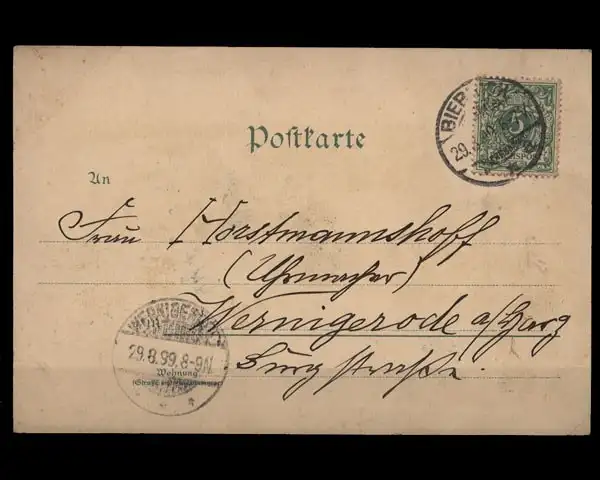 Postkarte
5
29.
An
Frau Horstmannshoff
(Uhrmacher)
Wernigerode a/Harz
Burgstraße.
WERNIGERODE
29.8.99.8-9N.
Wohnung
(Straße und Hausnummer)